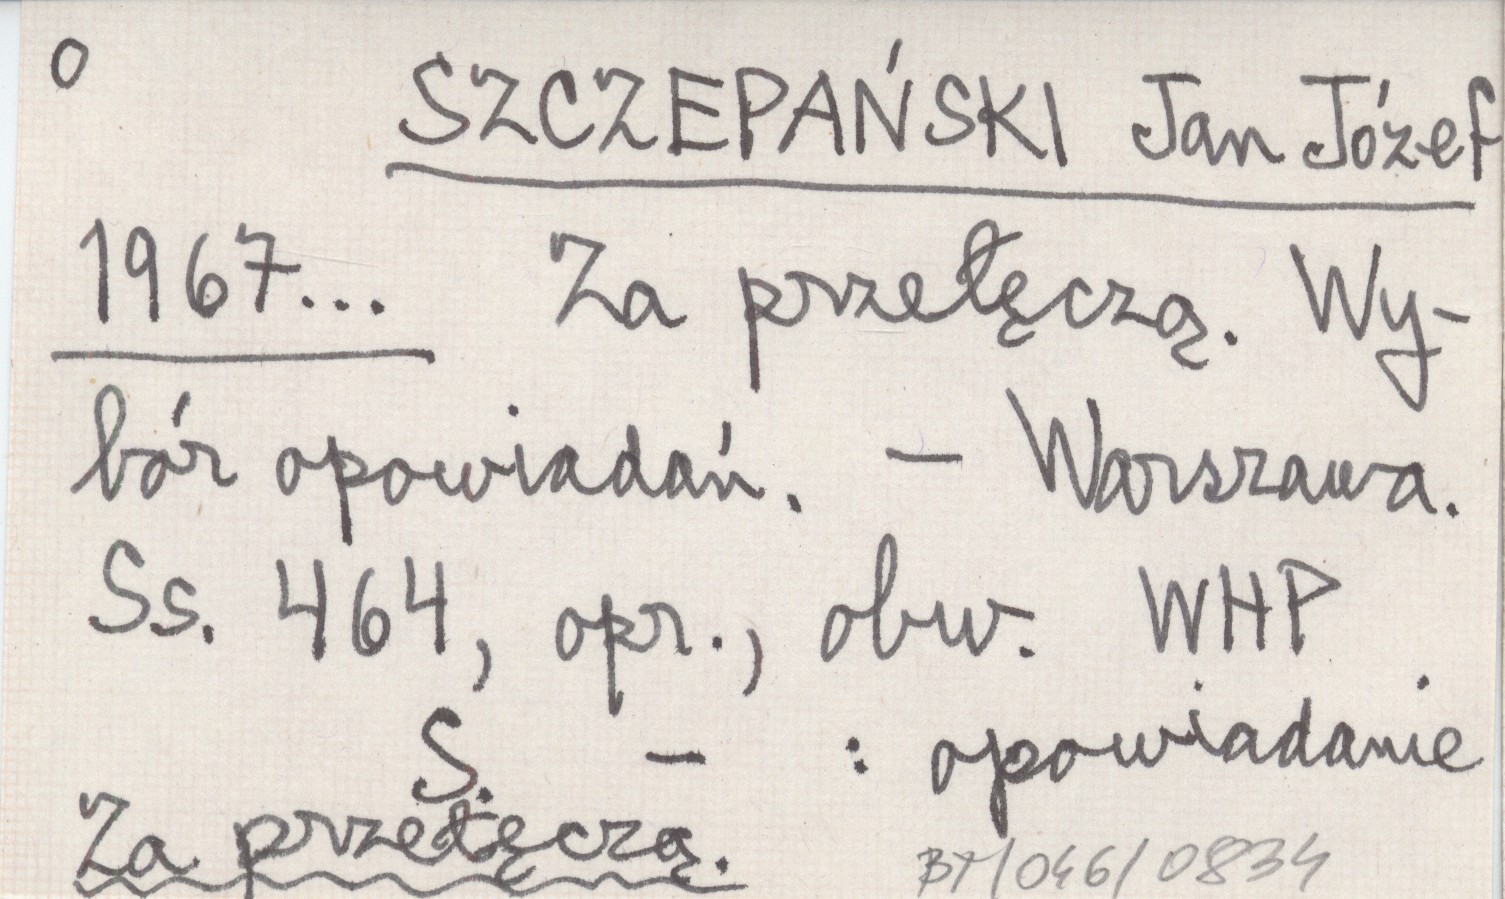 O SZCZEPAŃSKI Jan Józef
1967... Za przełęczą. Wy-
bór opowiadań. – Warszawa.
Ss. 464, opr., obw. WHP
S. – : opowiadanie
Za przełęczą.
BT/046/0834